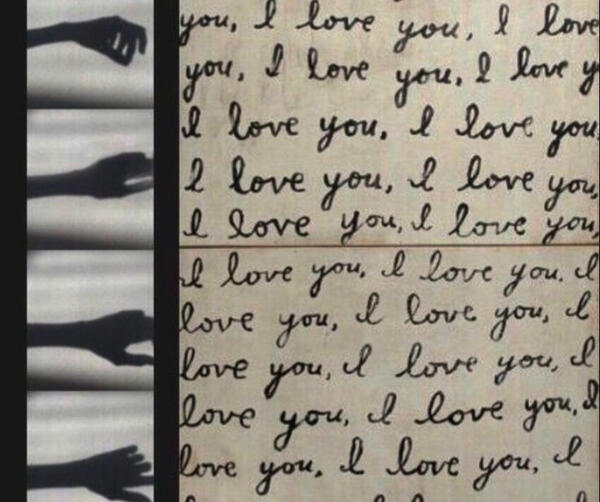 you, I love you, I love
you, I love you, I love y
I love you, I love you
I love you, I love you,
I love you, I love you,
I love you, I love you. I
love you, I love you, I
love you, I love you, I
love you, I love you, I
love you, I love you, I